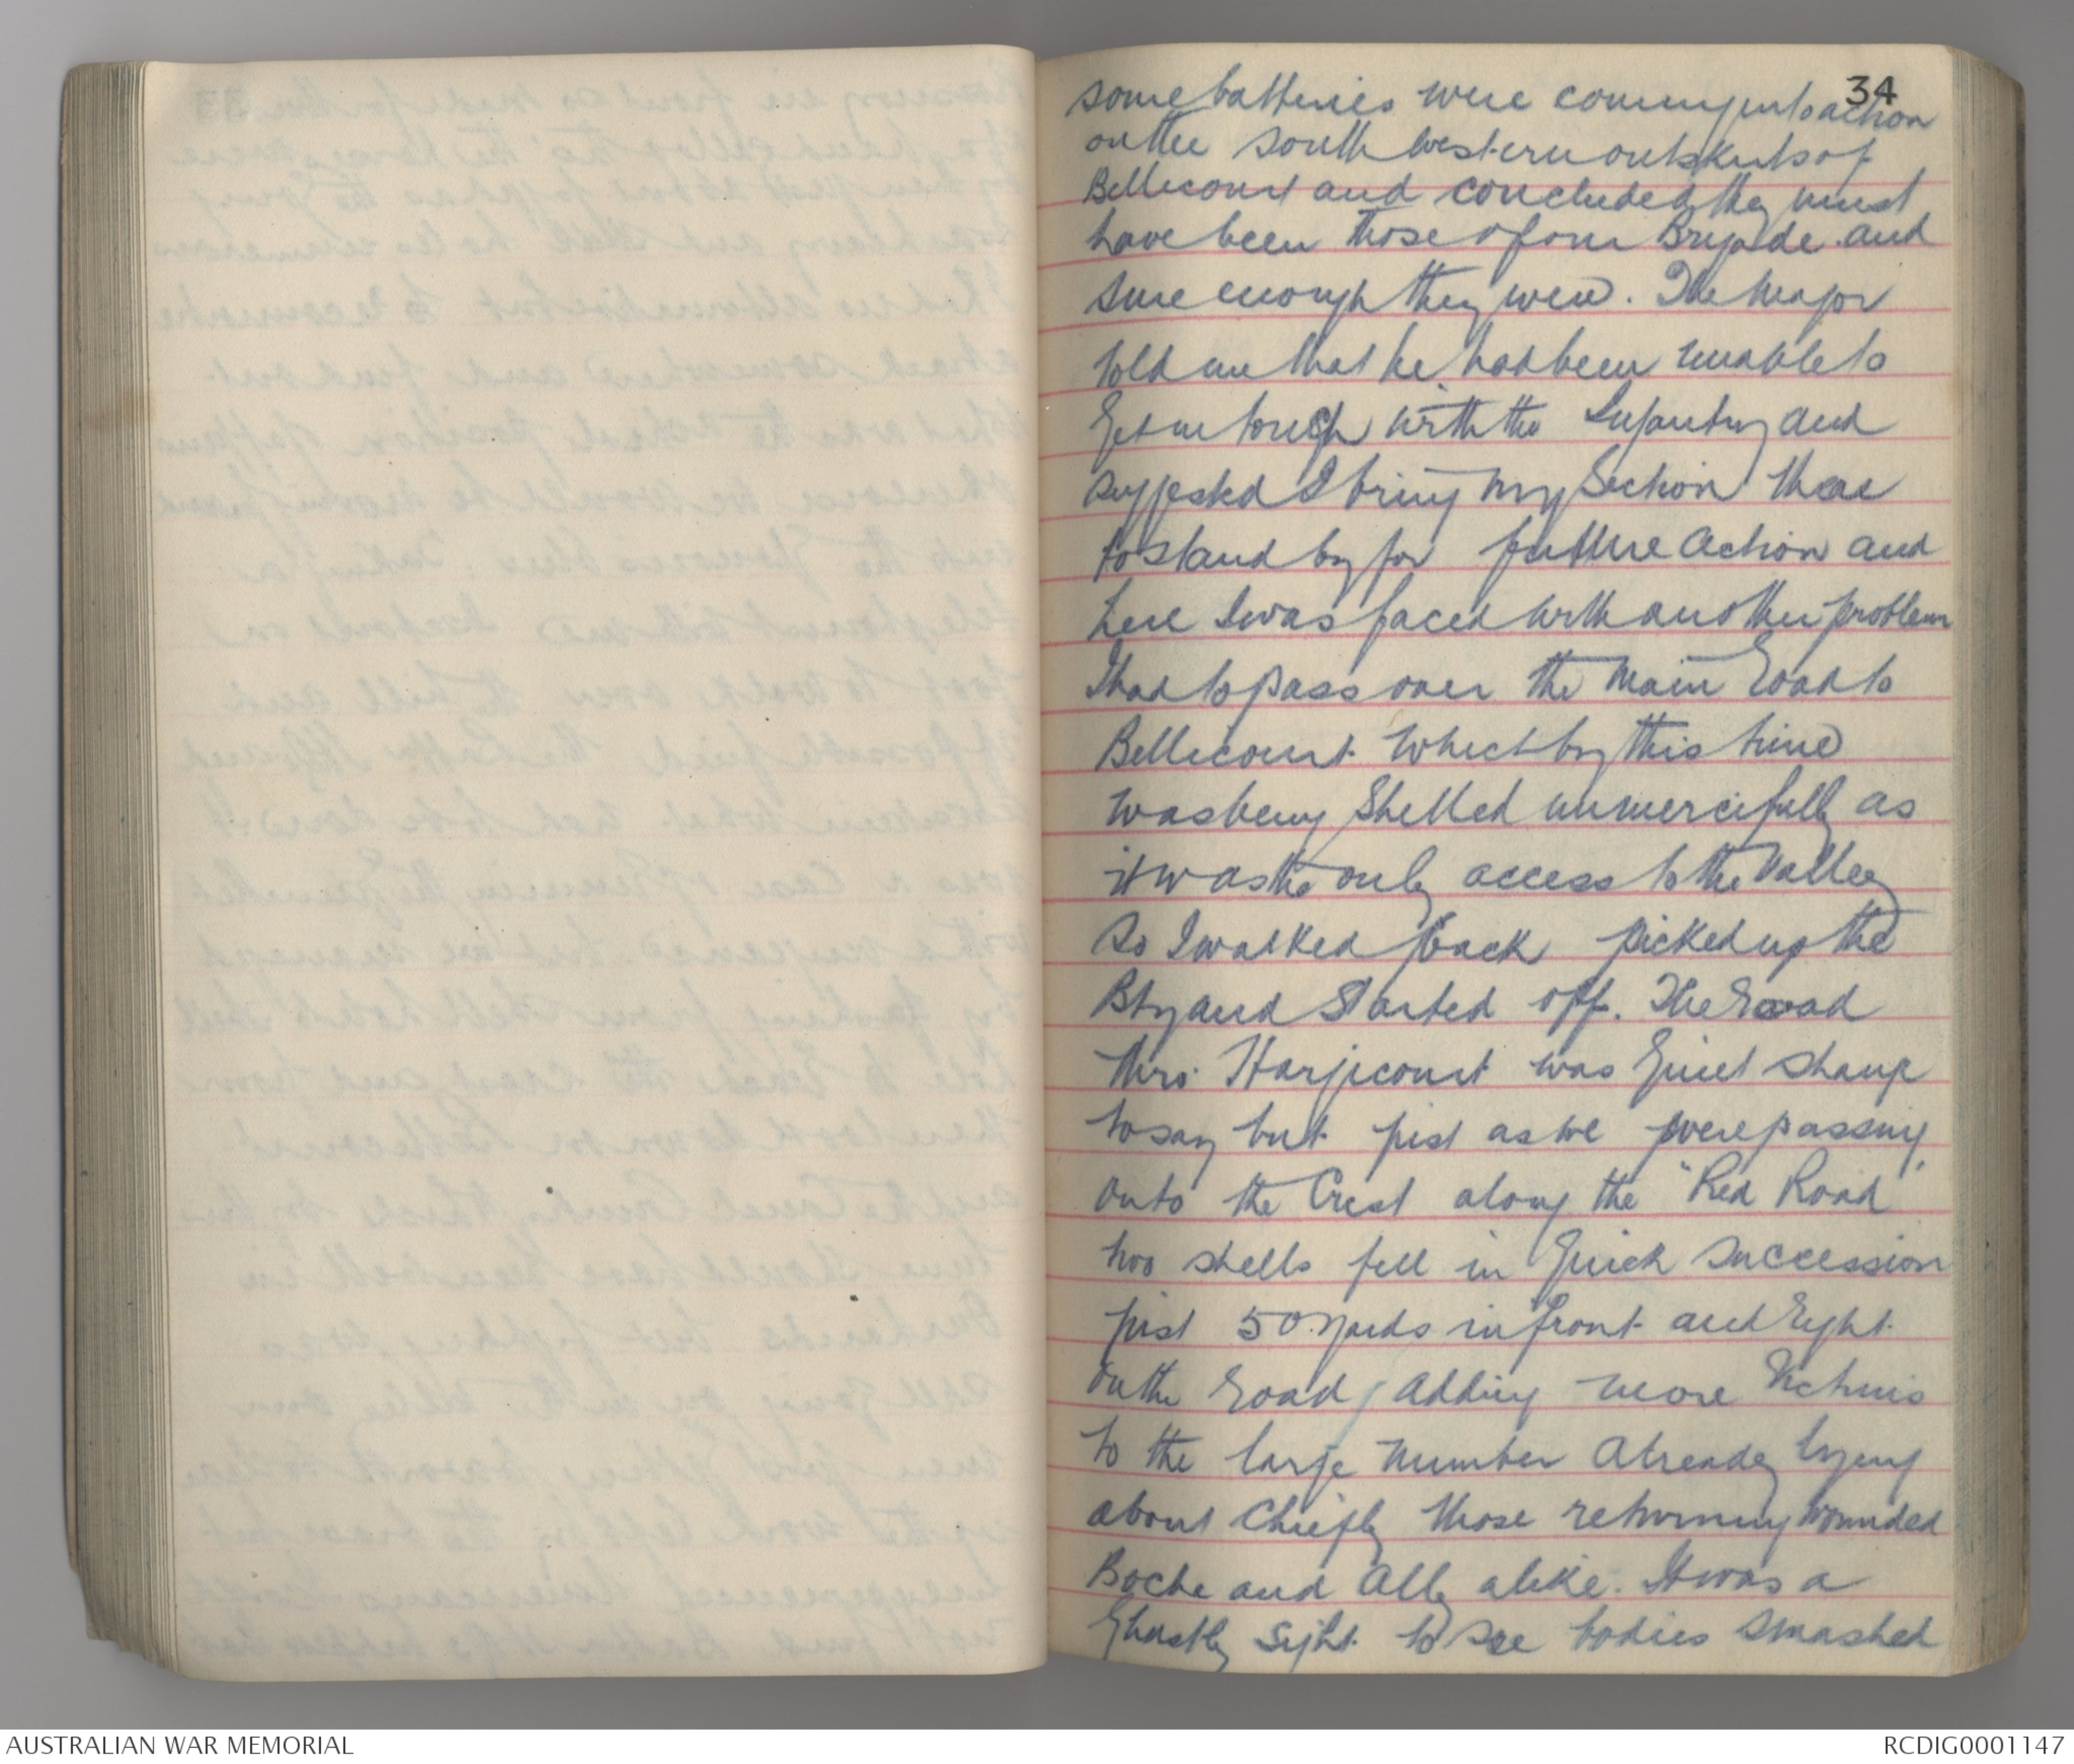 34
some batteries were coming into action
on the South Western outskirts of
Bellicourt and concluded they must
have been those of our Brigade and
sure enough they were. The Major
told me that he had been unable to
Get in touch with the Infantry and
suggested I bring my Section there
to stand by for future action and
here I was faced with another problem
I had to pass over the main road to
Bellicourt which by this time
was being shelled unmercifully as
it was the only access to the Valley
So I walked back picked up the
Bty and started off. The road
thro' Hargicourt was quiet strange
to say but just as we were passing
onto the Crest along the "Red Road"
two shells fell in quick succession
just 50 yards in front and right
on the road adding more victims
to the large number already lying
about chiefly those returning wounded
Boche and Ally alike. It was a
Ghastly sight to see bodies smashed
AUSTRALIAN WAR MEMORIAL
RCDIG0001147